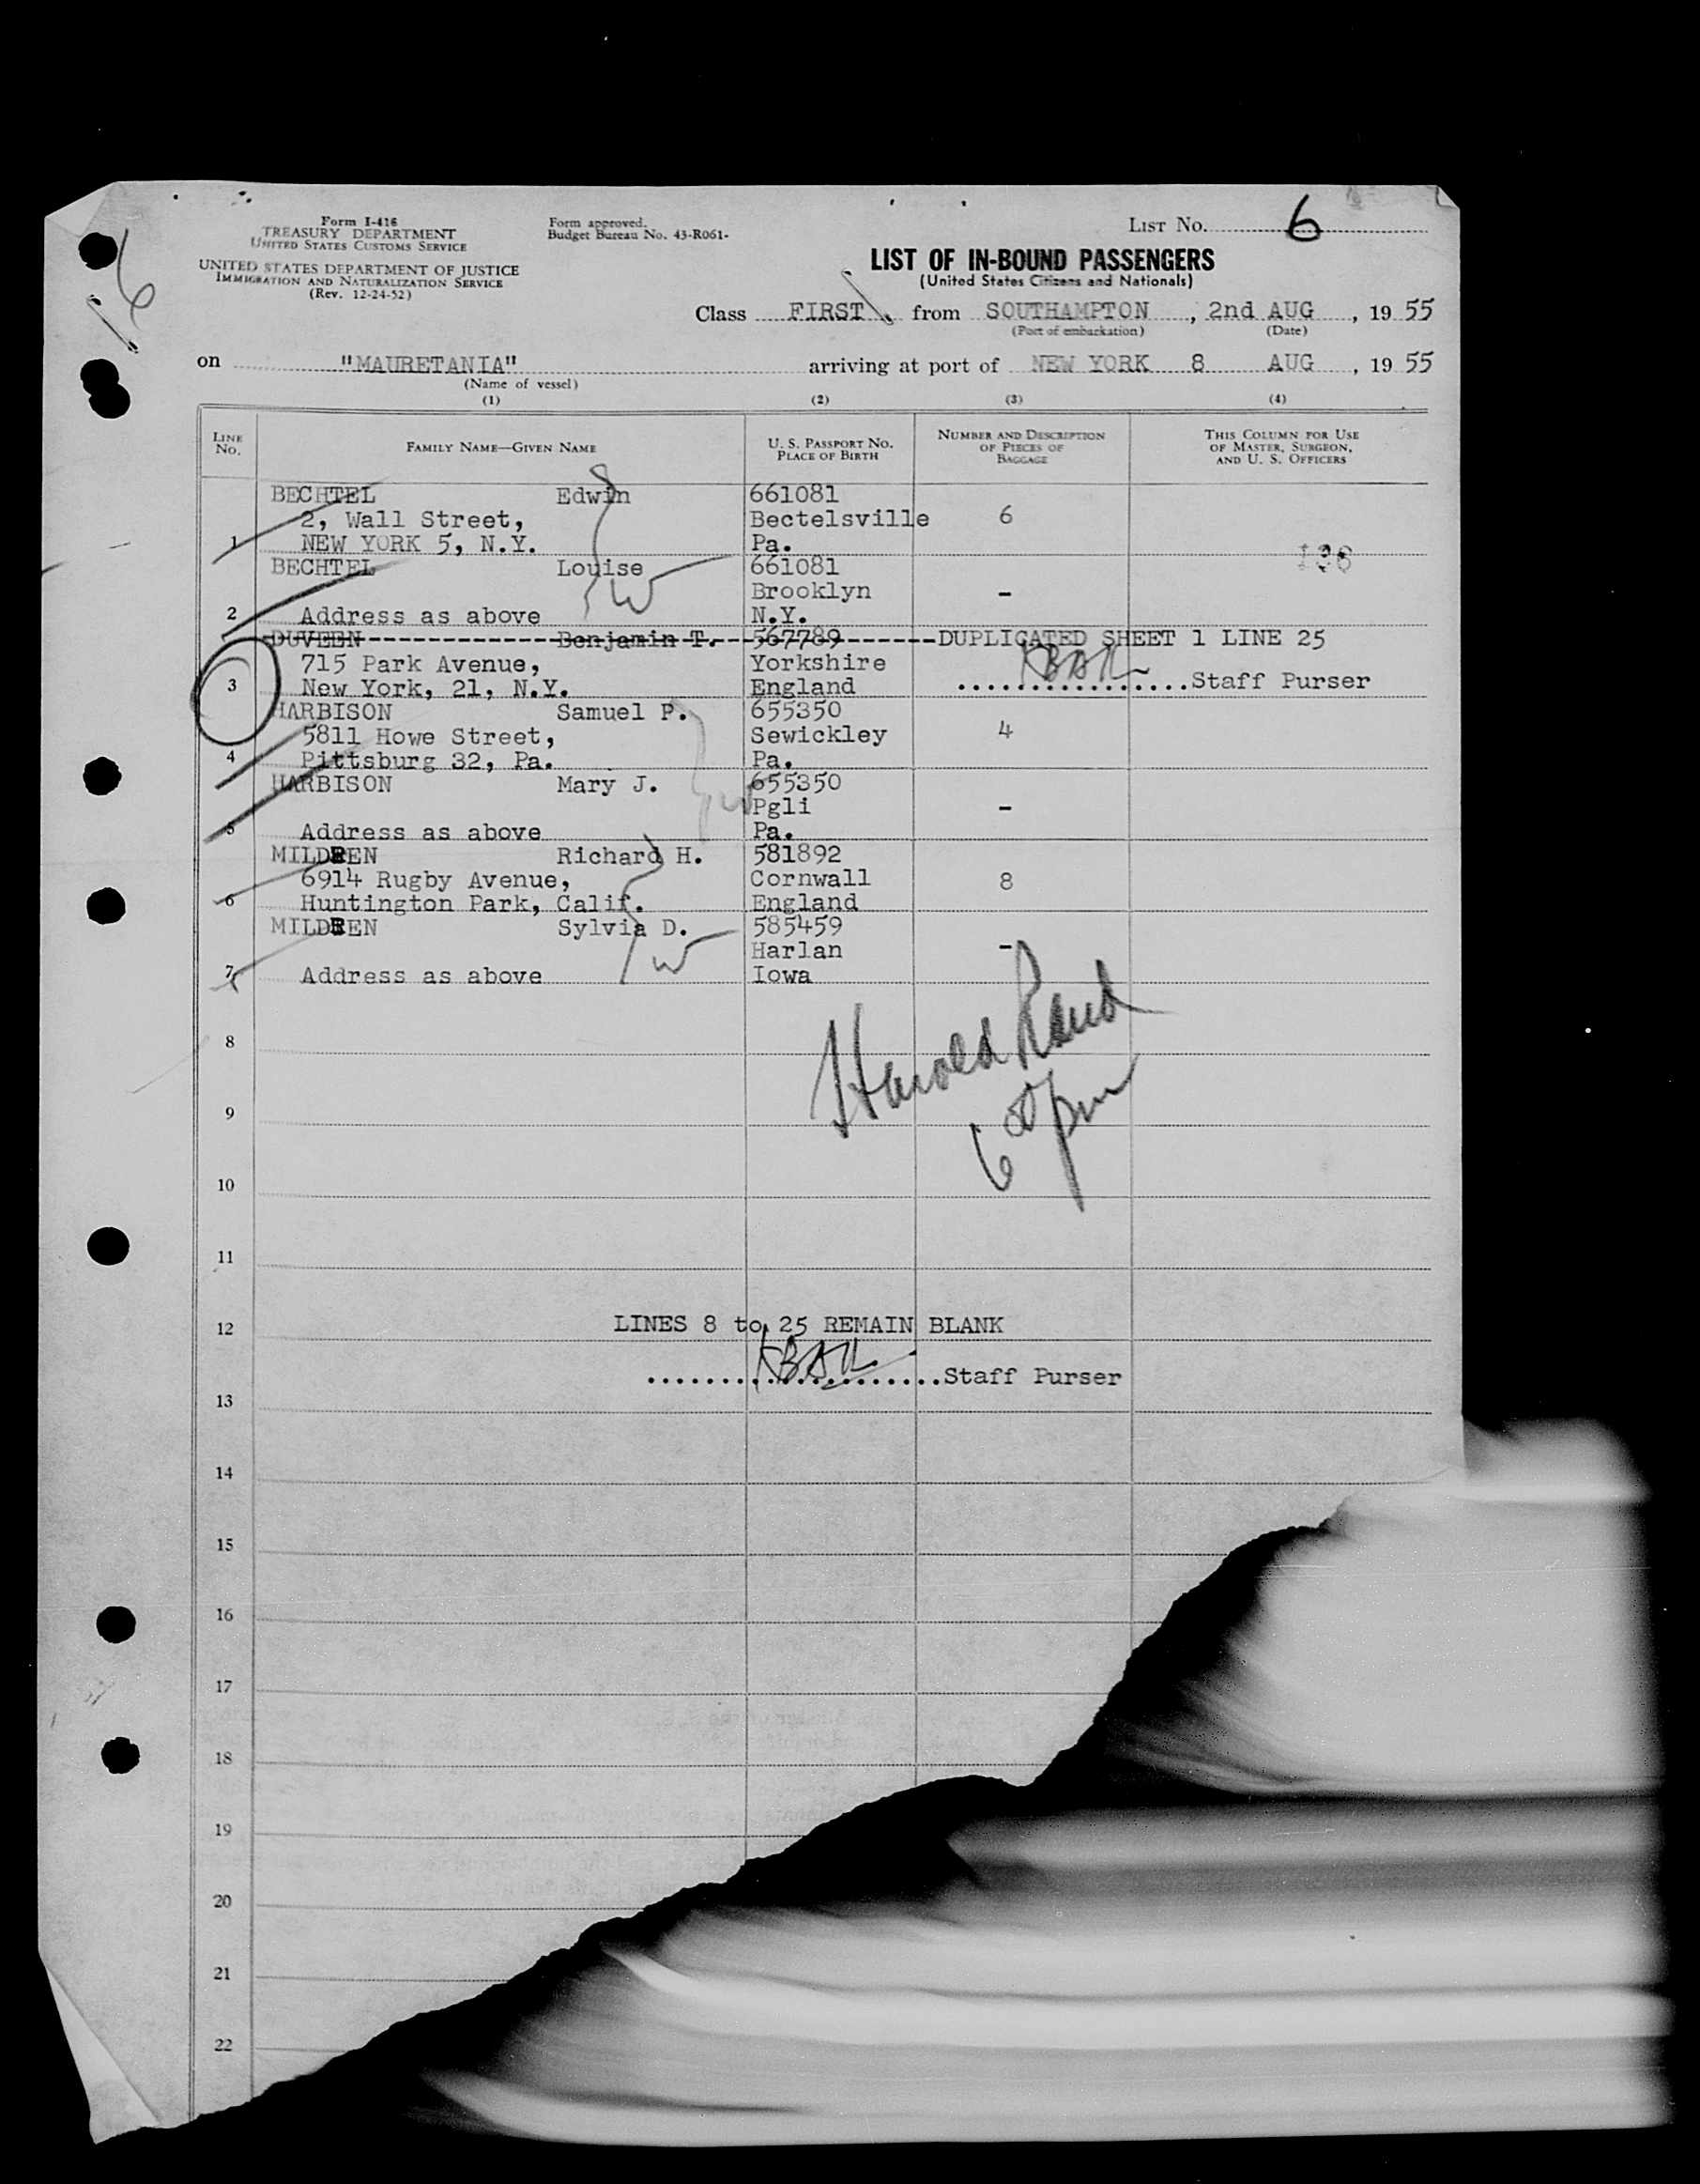 Form I-416
TREASURY DEPARTMENT
UNITED STATES CUSTOMS SERVICE
UNITED STATES DEPARTMENT OF JUSTICE
IMMIGRATION AND NATURALIZATION SERVICE
(Rev. 12-24-52)
Form approved.
Budget Bureau No. 43-R061-
LIST No. 6
LIST OF IN-BOUND PASSENGERS
(United States Citizens and Nationals)
Class FIRST from SOUTHAMPTON, 2nd AUG, 1955
(Port of embarkation) (Date)
on "MAURETANIA" arriving at port of NEW YORK 8 AUG, 1955
(Name of vessel)
(1) (2) (3) (4)
LINE No. FAMILY NAME—GIVEN NAME U. S. PASSPORT NO. PLACE OF BIRTH NUMBER AND DESCRIPTION OF PIECES OF BAGGAGE THIS COLUMN FOR USE OF MASTER, SURGEON, AND U. S. OFFICERS
BECHTEL Edwin 661081
2, Wall Street, Bectelsville 6
1 NEW YORK 5, N.Y. Pa.
BECHTEL Louise 661081
Brooklyn -
2 Address as above N.Y.
DUVEEN Benjamin T. 567789 DUPLICATED SHEET 1 LINE 25
715 Park Avenue, Yorkshire
3 New York, 21, N.Y. England ................Staff Purser
HARBISON Samuel P. 655350
5811 Howe Street, Sewickley 4
4 Pittsburg 32, Pa. Pa.
HARBISON Mary J. 655350
Pgli -
5 Address as above Pa.
MILDREN Richard H. 581892
6914 Rugby Avenue, Cornwall 8
6 Huntington Park, Calif. England
MILDREN Sylvia D. 585459
Harlan -
7 Address as above Iowa
Harold Rand
8
6 00 pm
9
10
11
12 LINES 8 to 25 REMAIN BLANK
....................Staff Purser
13
14
15
16
17
18
19
20
21
22